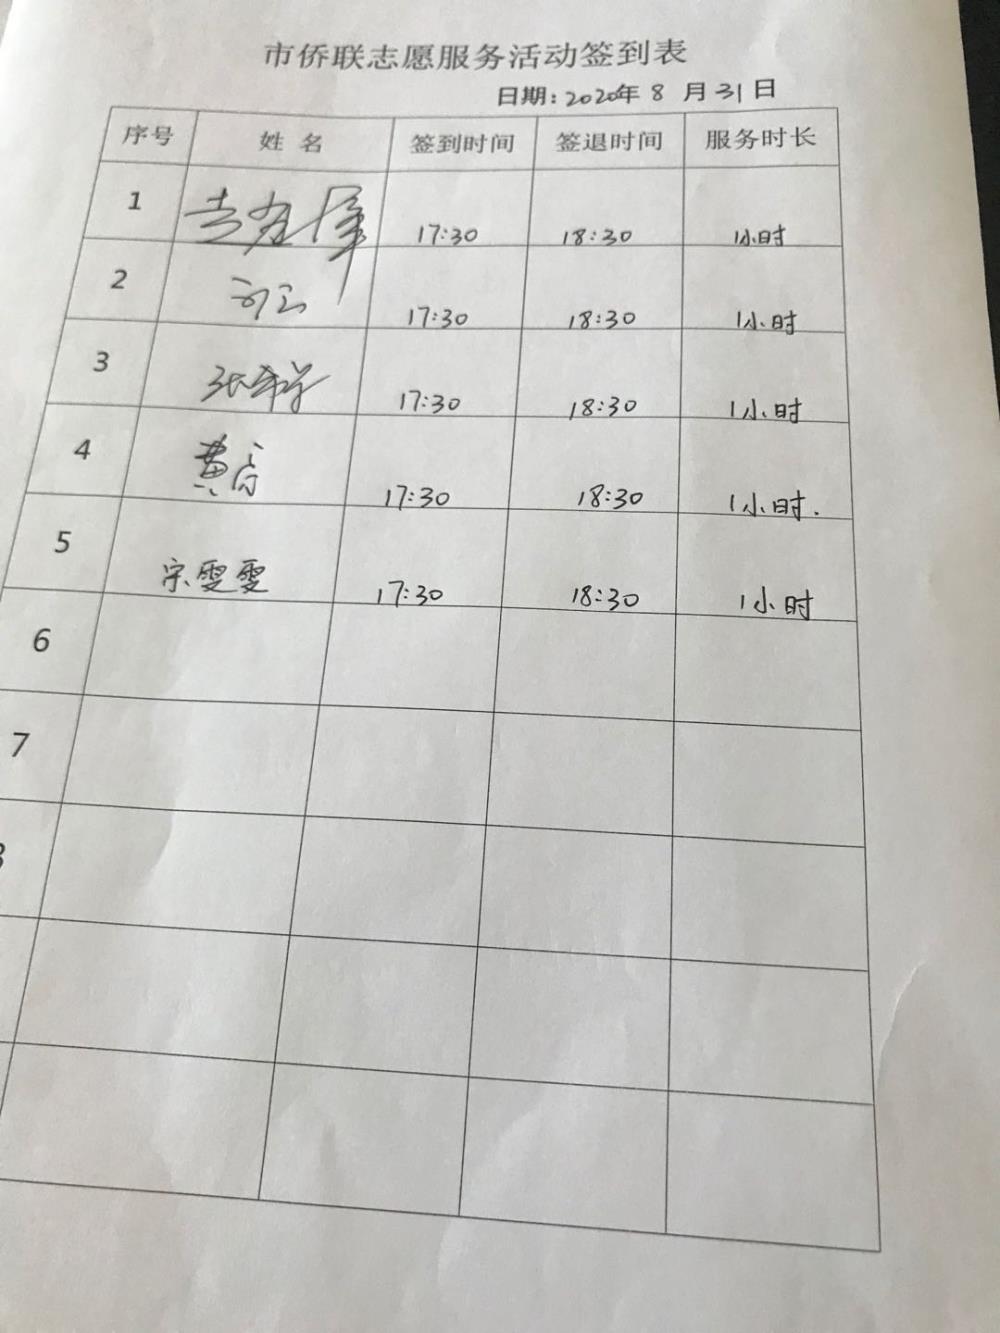 市侨联志愿服务活动签到表
日期:2020年 8 月 31 日
序号 姓 名 签到时间 签退时间 服务时长
1 17:30 18:30 1小时
2 17:30 18:30 1小时
3 17:30 18:30 1小时
4 黄 17:30 18:30 1小时.
5 宗雯雯 17:30 18:30 1小时
6
7